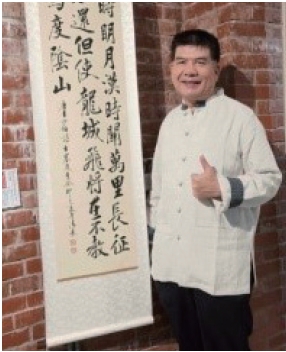 時明月漢時關萬里長征
還但使龍城飛將在不教
馬度陰山